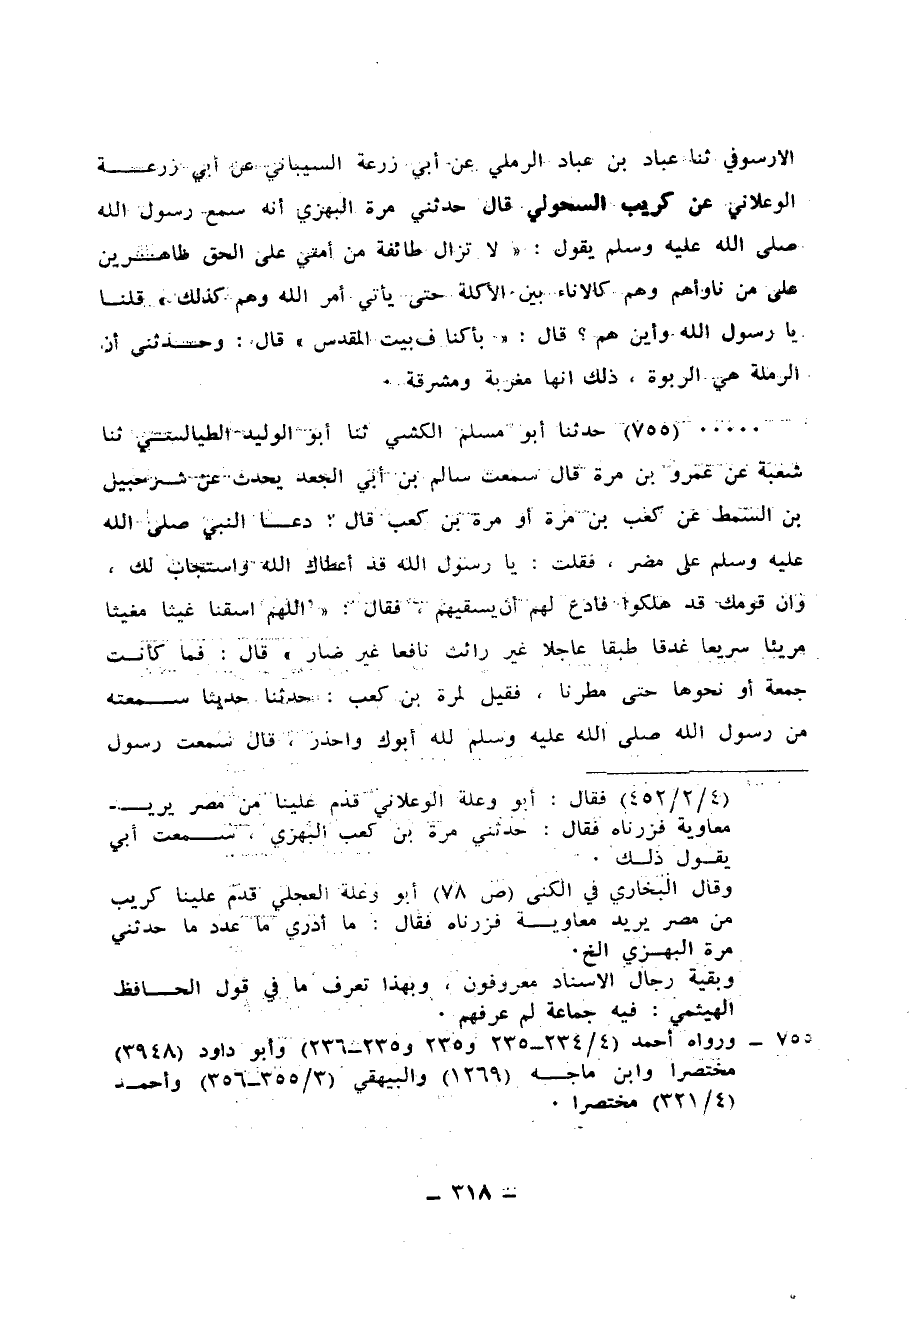 الارسوفي ثنا عباد بن عباد الرملي عن أبي زرعة السيباني عن أبي زرعــــة
الوعلاني عن كريب السحولي قال حدثني مرة البهزي أنه سمع رسول الله
صلى الله عليه وسلم يقول : « لا تزال طائفة من أمتي على الحق ظاهرين
على من ناوأهم وهم كالاناء بين الأكلة حتى يأتي أمر الله وهم كذلك » قلنــا
يا رسول الله وأين هم ؟ قال : « بأكنا ف بيت المقدس » قال : وحــدثني أن
الرملة هي الربوة ، ذلك انها مغربة ومشرقة ٠
٠٠٠٠٠ (٧٥٥) حدثنا أبو مسلم الكشي ثنا أبو الوليد الطيالسي ثنا
شعبة عن عمرو بن مرة قال سمعت سالم بن أبي الجعد يحدث عن شرحبيل
بن السمط عن كعب بن مرة أو مرة بن كعب قال : دعــا النبي صلى الله
عليه وسلم على مضر ، فقلت : يا رسول الله قد أعطاك الله واستجاب لك ،
وان قومك قد هلكوا فادع لهم أن يسقيهم ، فقال : « اللهم اسقنا غيثا مغيثا
مريئا سريعا غدقا طبقا عاجلا غير رائث نافعا غير ضار » قال : فما كانت
جمعة أو نحوها حتى مطرنا ، فقيل لمرة بن كعب : حدثنا حديثا ســمعته
من رسول الله صلى الله عليه وسلم لله أبوك واحذر ، قال سمعت رسول
(٤٥٢/٢/٤) فقال : أبو وعلة الوعلاني قدم علينا من مصر يريــد
معاوية فزرناه فقال : حدثني مرة بن كعب البهزي ، ســمعت أبي
يقــول ذلــك ٠
وقال البخاري في الكنى (ص ٧٨) أبو وعلة العجلي قدم علينا كريب
من مصر يريد معاويــة فزرناه فقال : ما أدري ما عدد ما حدثني
مرة البهــزي الخ٠
وبقية رجال الاسناد معروفون ، وبهذا تعرف ما في قول الحــافظ
الهيثمي : فيه جماعة لم عرفهم ٠
٧٥٥ ـ ورواه أحمد (٢٣٤/٤ـ٢٣٥ و٢٣٥ و٢٣٥ـ٢٣٦) وأبو داود (٣٩٤٨)
مختصرا وابن ماجــه (١٢٦٩) والبيهقي (٣٥٥/٣ـ٣٥٦) وأحمــد
(٣٢١/٤) مختصرا ٠
ـ ٣١٨ ـ